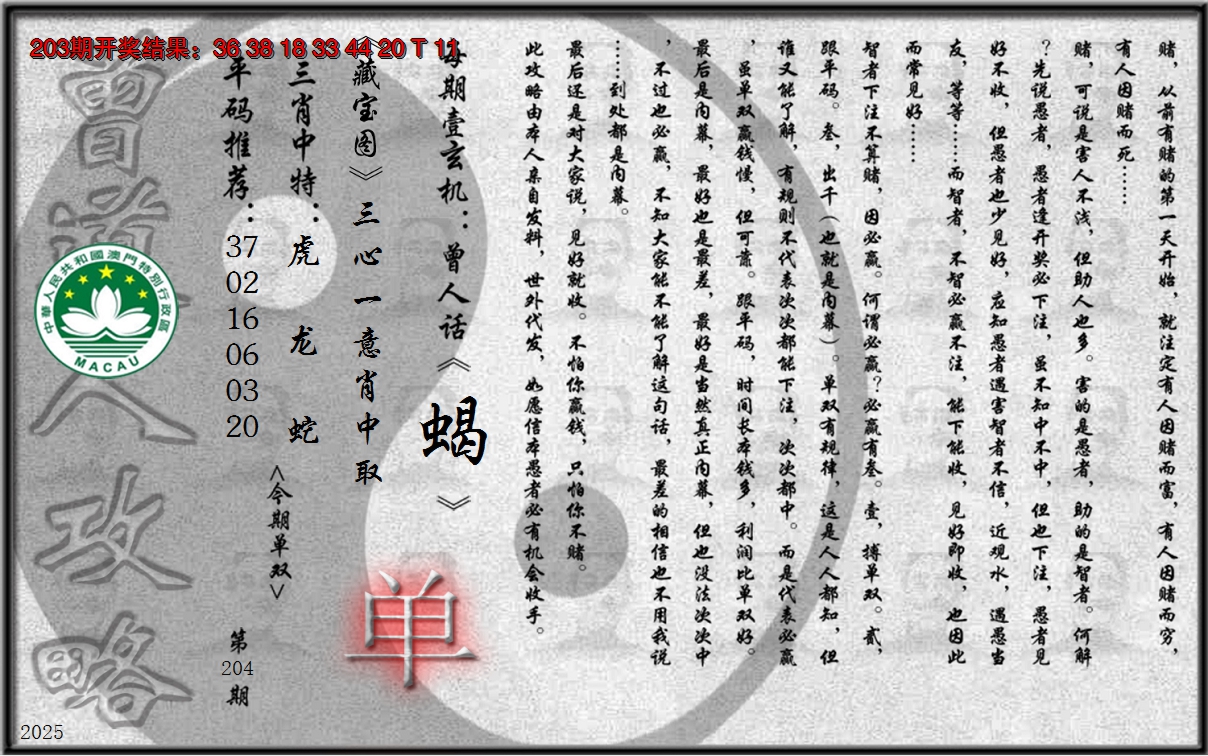 203期开奖结果：36 38 18 33 44 20 T 11
赌，从前有赌的第一天开始，就注定有人因赌而富，有人因赌而穷，
有人因赌而死……
赌，可说是害人不浅，但助人也多。害的是愚者，助的是智者。何解
？先说愚者，愚者逢开奖必下注，虽不知中不中，但也下注，愚者见
好不收，但愚者也少见好，应知愚者遇害智者不信，近观水，遇愚当
友，等等……而智者，不智必赢不注，能下能收，见好即收，也因此
而常见好……
智者下注不算赌，因必赢。何谓必赢？必赢有叁。壹，搏单双。贰，
跟平码。叁，出千（也就是内幕）。单双有规律，这是人人都知，但
谁又能了解，有规则不代表次次都能下注，次次都中。而是代表必赢
，虽单双赢钱慢，但可靠。跟平码，时间长本钱多，利润比单双好。
最后是内幕，最好也是最差，最好是当然真正内幕，但也没法次次中
，不过也必赢，不知大家能不能了解这句话，最差的相信也不用我说
……到处都是内幕。
最后还是对大家说，见好就收。不怕你赢钱，只怕你不赌。
此攻略由本人亲自发料，世外代发，如愿信本愚者必有机会收手。
每期壹玄机：曾人话《蝎》
《藏宝图》三心一意肖中取
单
三肖中特：虎 龙 蛇
<今期单双>
平码推荐：37 02 16 06 03 20
第204期
曾道人攻略
中華人民共和國澳門特別行政區
MACAU
2025